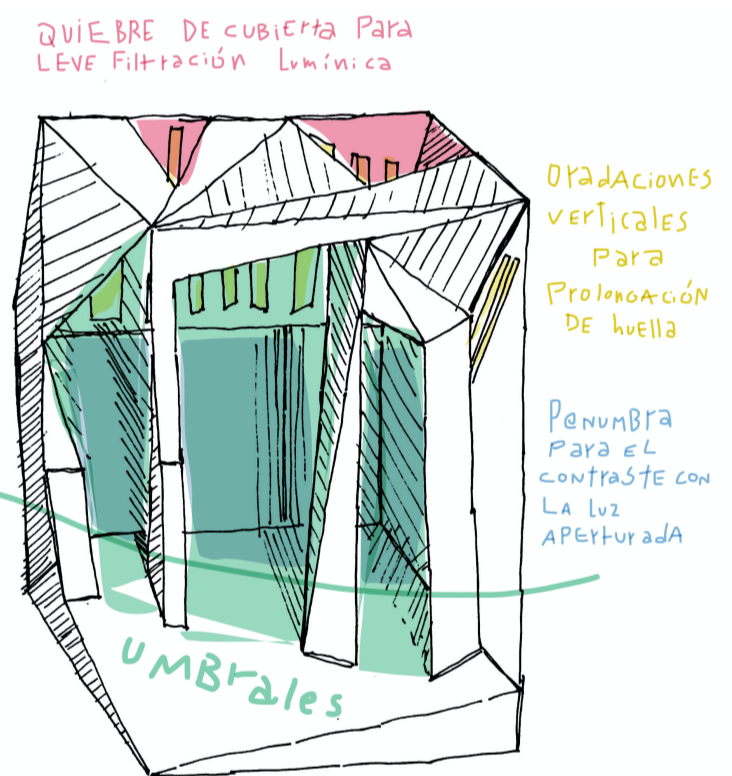 QUIEBRE DE CUBIErta Para
LEVE FiltraCIÓN Lumínica
OradACIONES
VErticalES
Para
ProlonGACIÓN
DE huElla
PeNUMBra
Para EL
CONtraStE CON
LA Luz
APErturadA
UMBrales